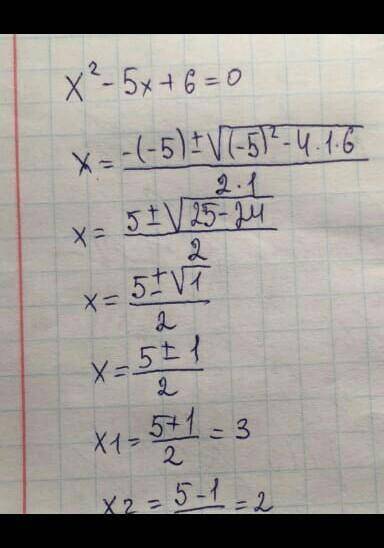 x² - 5x + 6 = 0
x = -(-5) ± √((-5)² - 4·1·6) / 2·1
x = 5 ± √(25 - 24) / 2
x = 5 ± √1 / 2
x = 5 ± 1 / 2
x1 = 5+1 / 2 = 3
x2 = 5-1 / = 2